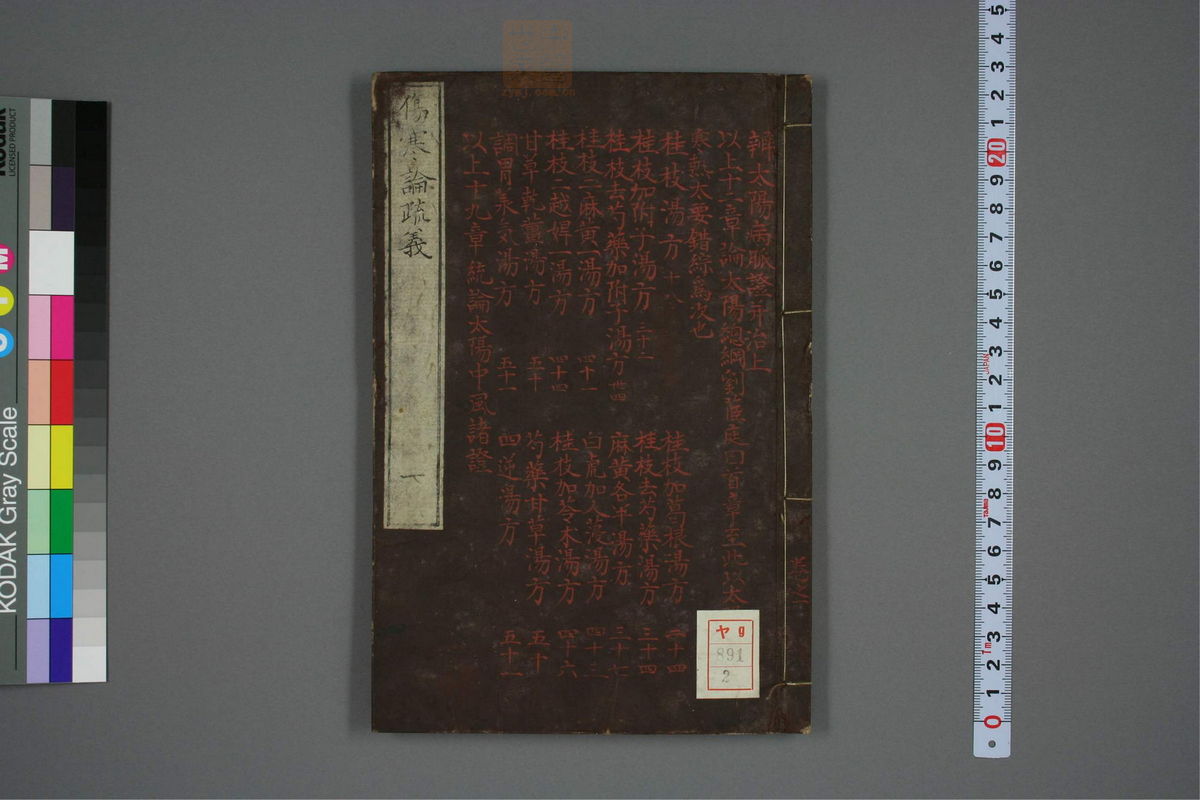 傷寒論疏義
一
辨太陽病脈證并治上
以上十一章論太陽總綱
至此以太
寒熱大要錯綜為次也
桂枝湯方 十八
桂枝加葛根湯方 二十四
桂枝加附子湯方 三十二
桂枝去芍藥湯方 三十四
桂枝去芍藥加附子湯方
麻黃各半湯方 三十七
桂枝二麻黃一湯方 四十一
白虎加人參湯方
桂枝二越婢一湯方 四十四
桂枝加苓朮湯方 四十六
甘草乾薑湯方 五十
芍藥甘草湯方 五十
調胃承氣湯方 五十一
四逆湯方 五十一
以上十九章統論太陽中風諸證
ヤ09
891
2
KODAK Gray Scale
Kodak
LICENSED PRODUCT
C Y M
5 4 3 2 1 20 9 8 7 6 5 4 3 2 1 10 9 8 7 6 5 4 3 2 1 0
JAPAN